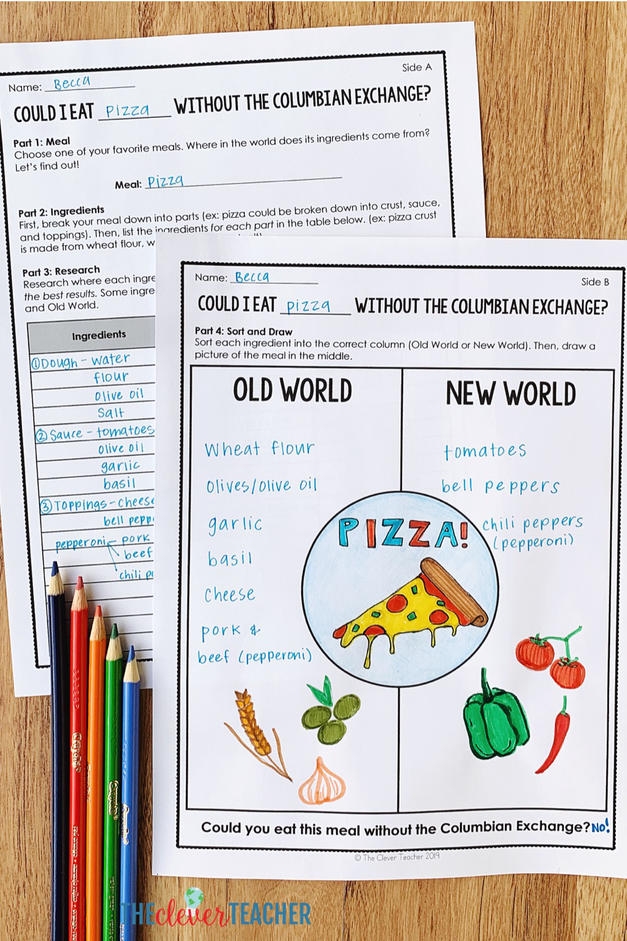 Side A
Name: Becca
COULD I EAT pizza WITHOUT THE COLUMBIAN EXCHANGE?
Part 1: Meal
Choose one of your favorite meals. Where in the world does its ingredients come from?
Let's find out!
Meal: Pizza
Part 2: Ingredients
First, break your meal down into parts (ex: pizza could be broken down into crust, sauce,
and toppings). Then, list the ingredients for each part in the table below. (ex: pizza crust
is made from wheat flour, w
Part 3: Research
Research where each ingre
the best results. Some ingre
and Old World.
Ingredients
① Dough - water
flour
olive oil
salt
② Sauce - tomatoes
olive oil
garlic
basil
③ Toppings - cheese
bell pepp
pepperoni pork
beef
chili p
Side B
Name: Becca
COULD I EAT pizza WITHOUT THE COLUMBIAN EXCHANGE?
Part 4: Sort and Draw
Sort each ingredient into the correct column (Old World or New World). Then, draw a
picture of the meal in the middle.
OLD WORLD
wheat flour
olives/olive oil
garlic
basil
cheese
pork &
beef (pepperoni)
NEW WORLD
tomatoes
bell peppers
chili peppers
(pepperoni)
PIZZA!
Could you eat this meal without the Columbian Exchange? No!
© The Clever Teacher 2019
THE cleverTEACHER